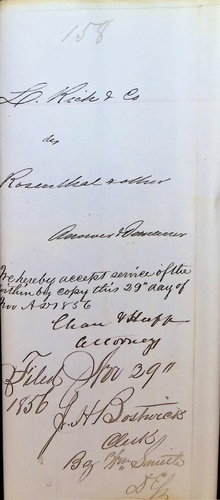 158
L. Rich & Co
vs
Rosenthal & other
Answer & Demurrer
We hereby accept service of the
within by copy this 29th day of
Nov A D 1856
Attorney
Filed Nov 29th
1856
J. H. Bostwick
Clerk
By Wm Smith